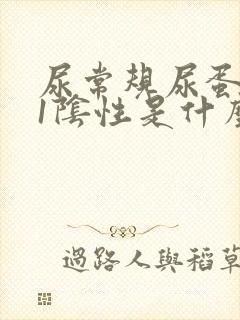 尿常規尿蛋
1陰性是什
過路人與稻草